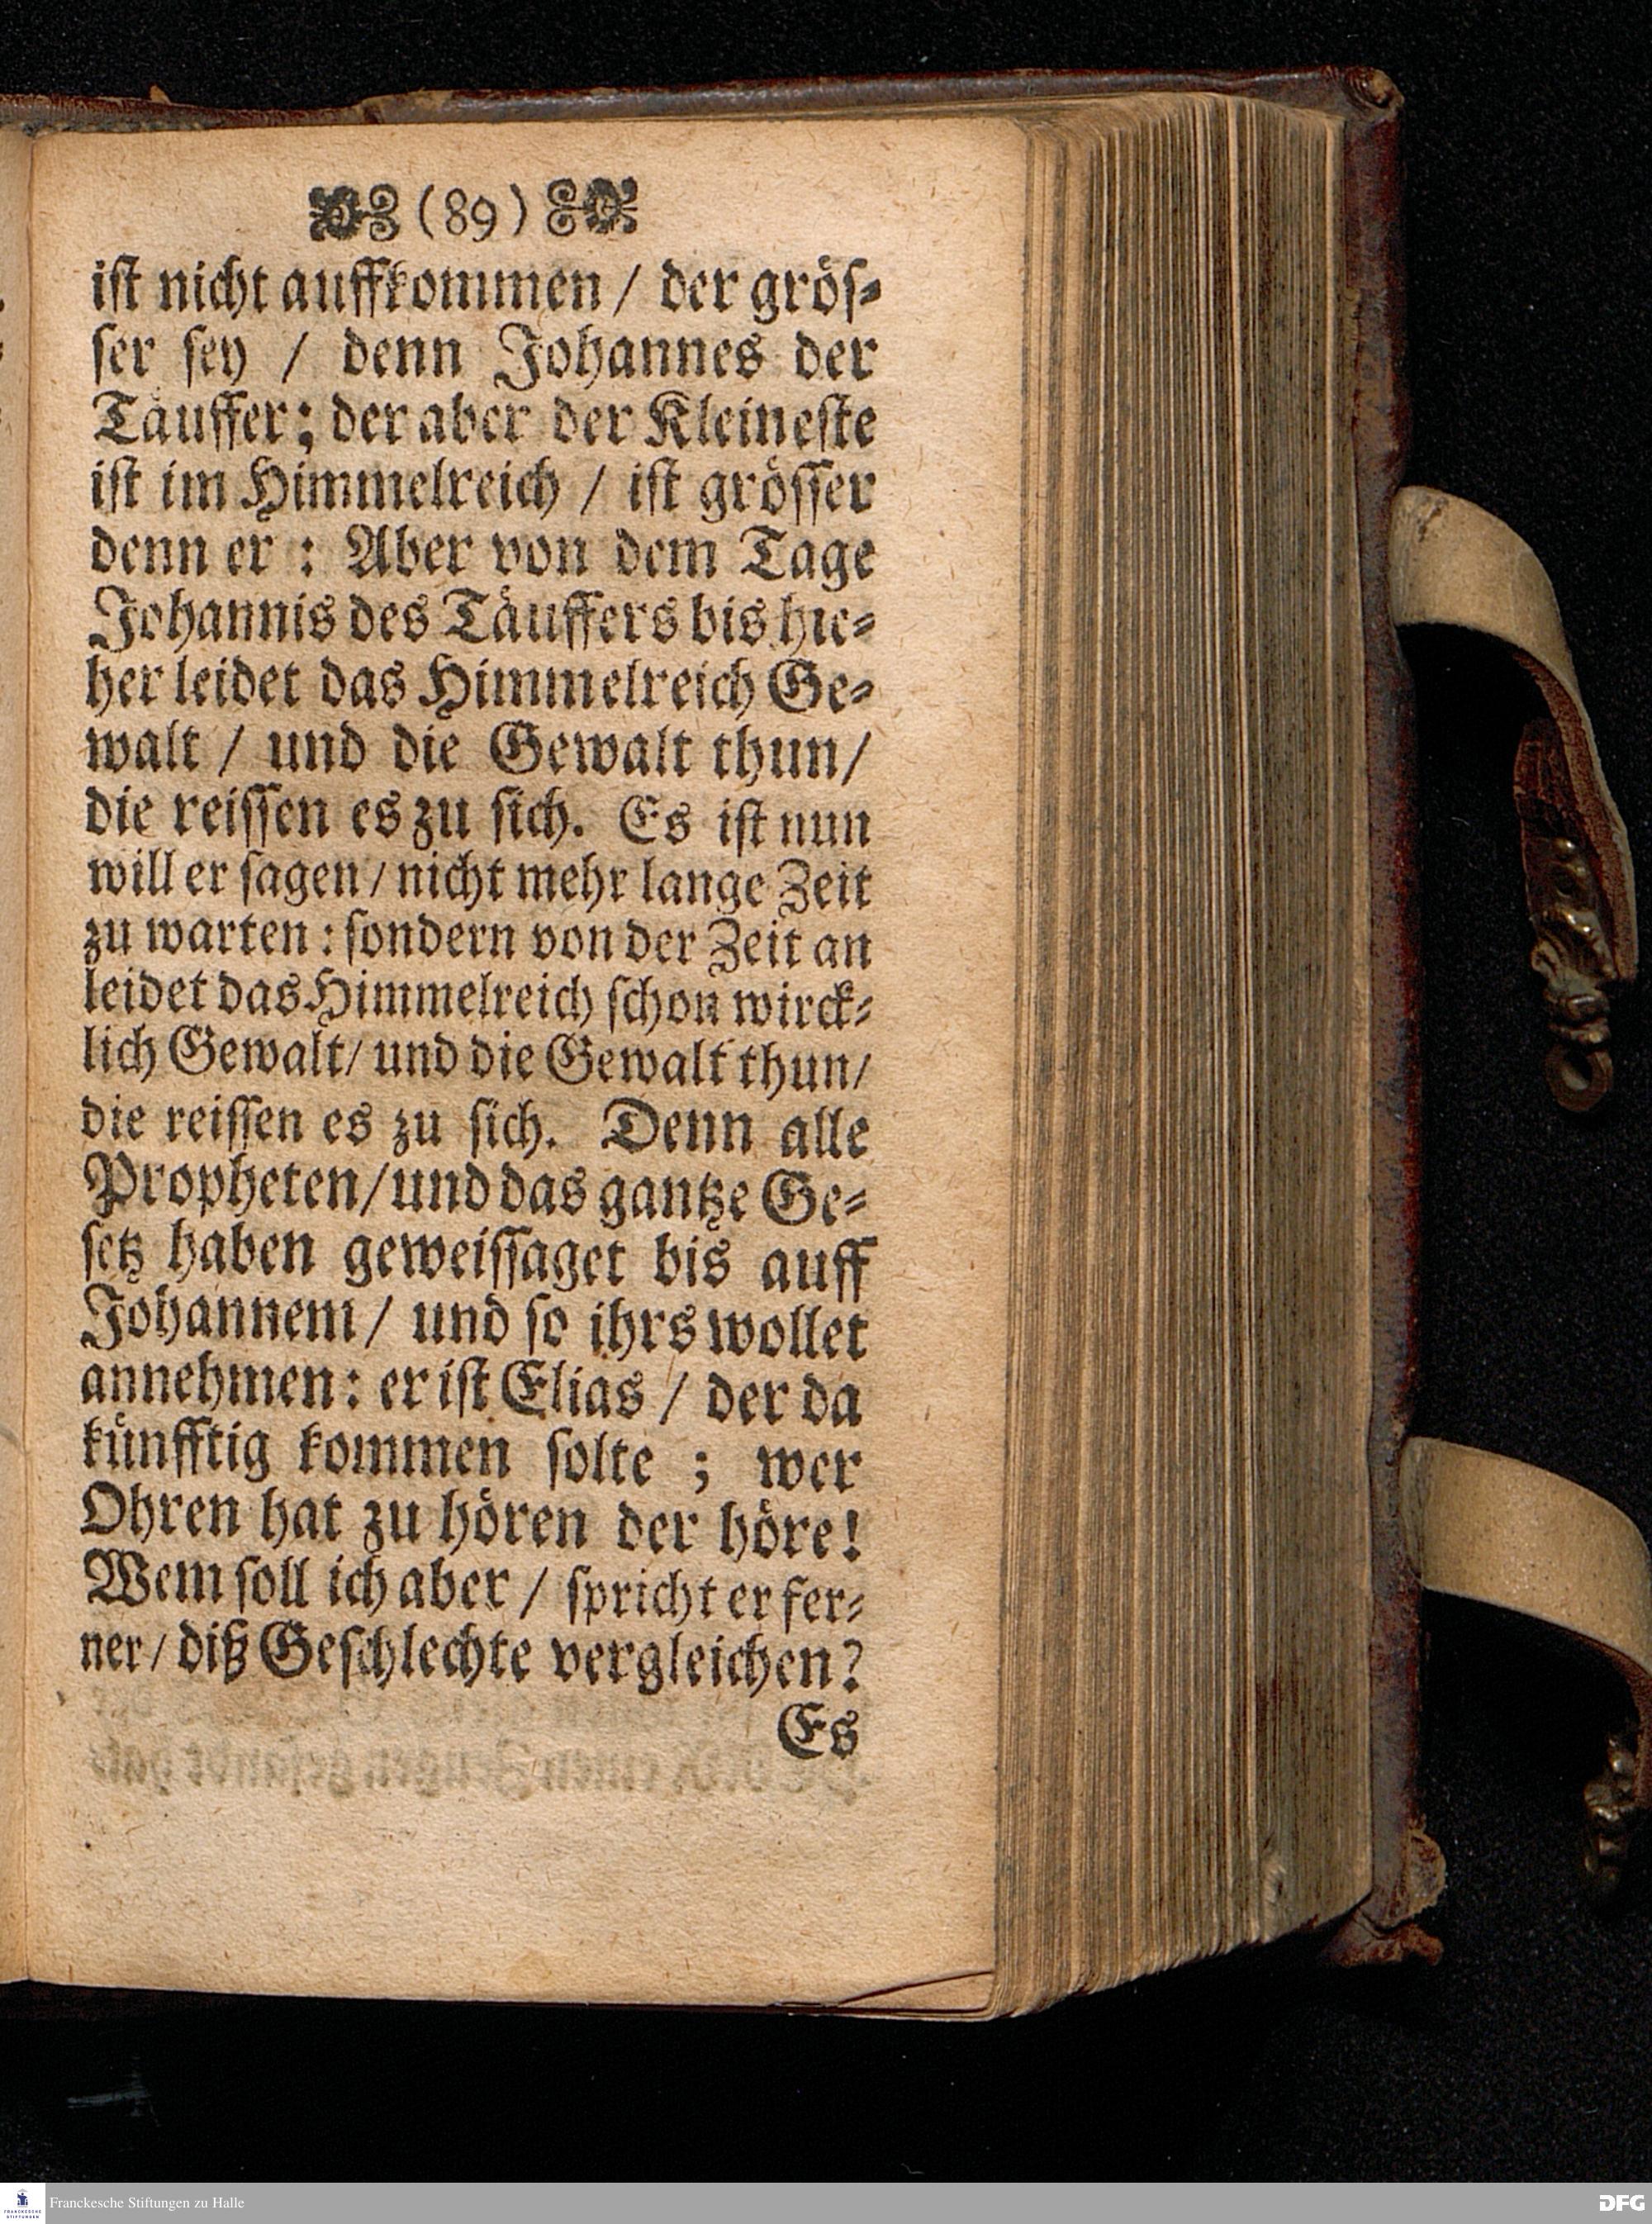 (89)
ist nicht auffkommen / der grös-
ser sey / denn Johannes der
Täuffer; der aber der Kleineste
ist im Himmelreich / ist grösser
denn er : Aber von dem Tage
Johannis des Täuffers bis hie-
her leidet das Himmelreich Ge-
walt / und die Gewalt thun/
die reissen es zu sich. Es ist nun
will er sagen / nicht mehr lange Zeit
zu warten : sondern von der Zeit an
leidet das Himmelreich schon wirck-
lich Gewalt/ und die Gewalt thun/
die reissen es zu sich. Denn alle
Propheten/und das gantze Ge-
setz haben geweissaget bis auff
Johannem / und so ihrs wollet
annehmen: er ist Elias / der da
künfftig kommen solte ; wer
Ohren hat zu hören der höre!
Wem soll ich aber / spricht er fer-
ner/ diß Geschlechte vergleichen?
Es
Franckesche Stiftungen zu Halle
DFG